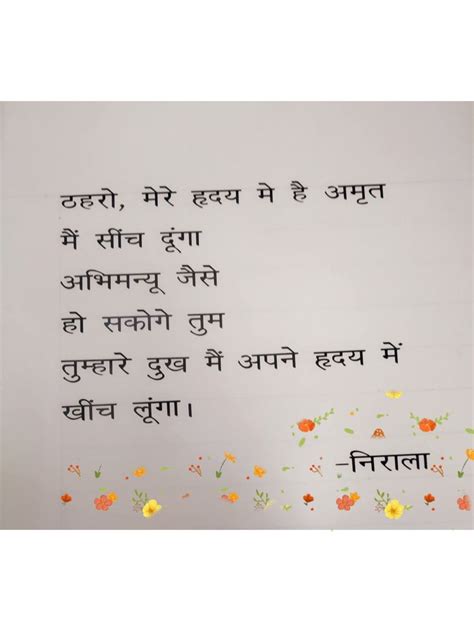 ठहरो, मेरे हृदय मे है अमृत
मैं सींच दूंगा
अभिमन्यू जैसे
हो सकोगे तुम
तुम्हारे दुख मैं अपने हृदय में
खींच लूंगा।
–निराला